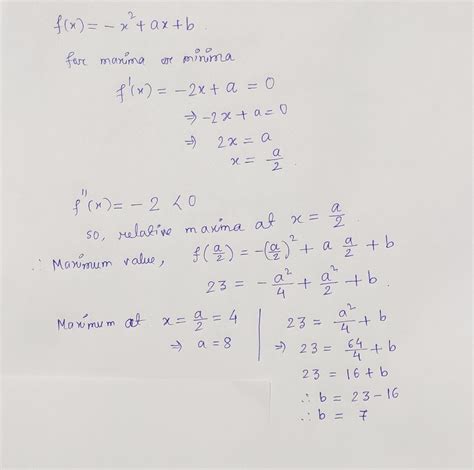 f(x) = - x² + ax + b.
for maxima or minima
f'(x) = -2x + a = 0
⇒ -2x + a = 0
⇒ 2x = a
x = a/2.
f''(x) = -2 < 0
so, relative maxima at x = a/2.
∴ Maximum value, f(a/2) = -(a/2)² + a a/2 + b
23 = - a²/4 + a²/2 + b.
Maximum at x = a/2 = 4
⇒ a = 8
23 = a²/4 + b
⇒ 23 = 64/4 + b
23 = 16 + b
∴ b = 23 - 16
∴ b = 7